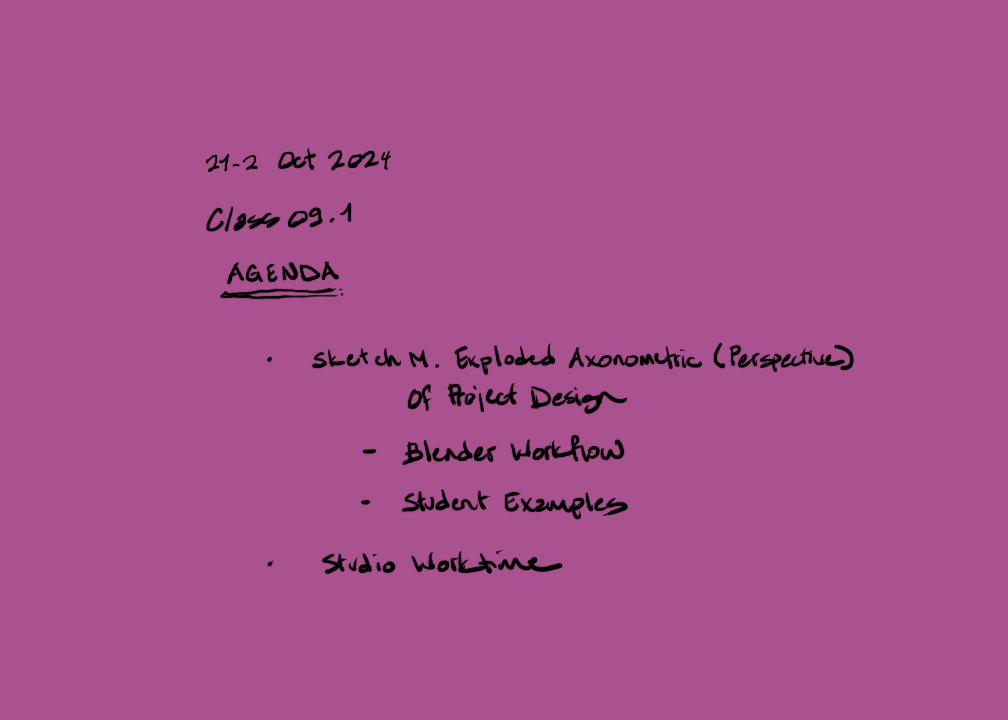 21-2 Oct 2024
Class 09.1
AGENDA
· Sketch M. Exploded Axonometric (Perspective)
Of Project Design
- Blender Workflow
- Student Examples
· Studio Worktime